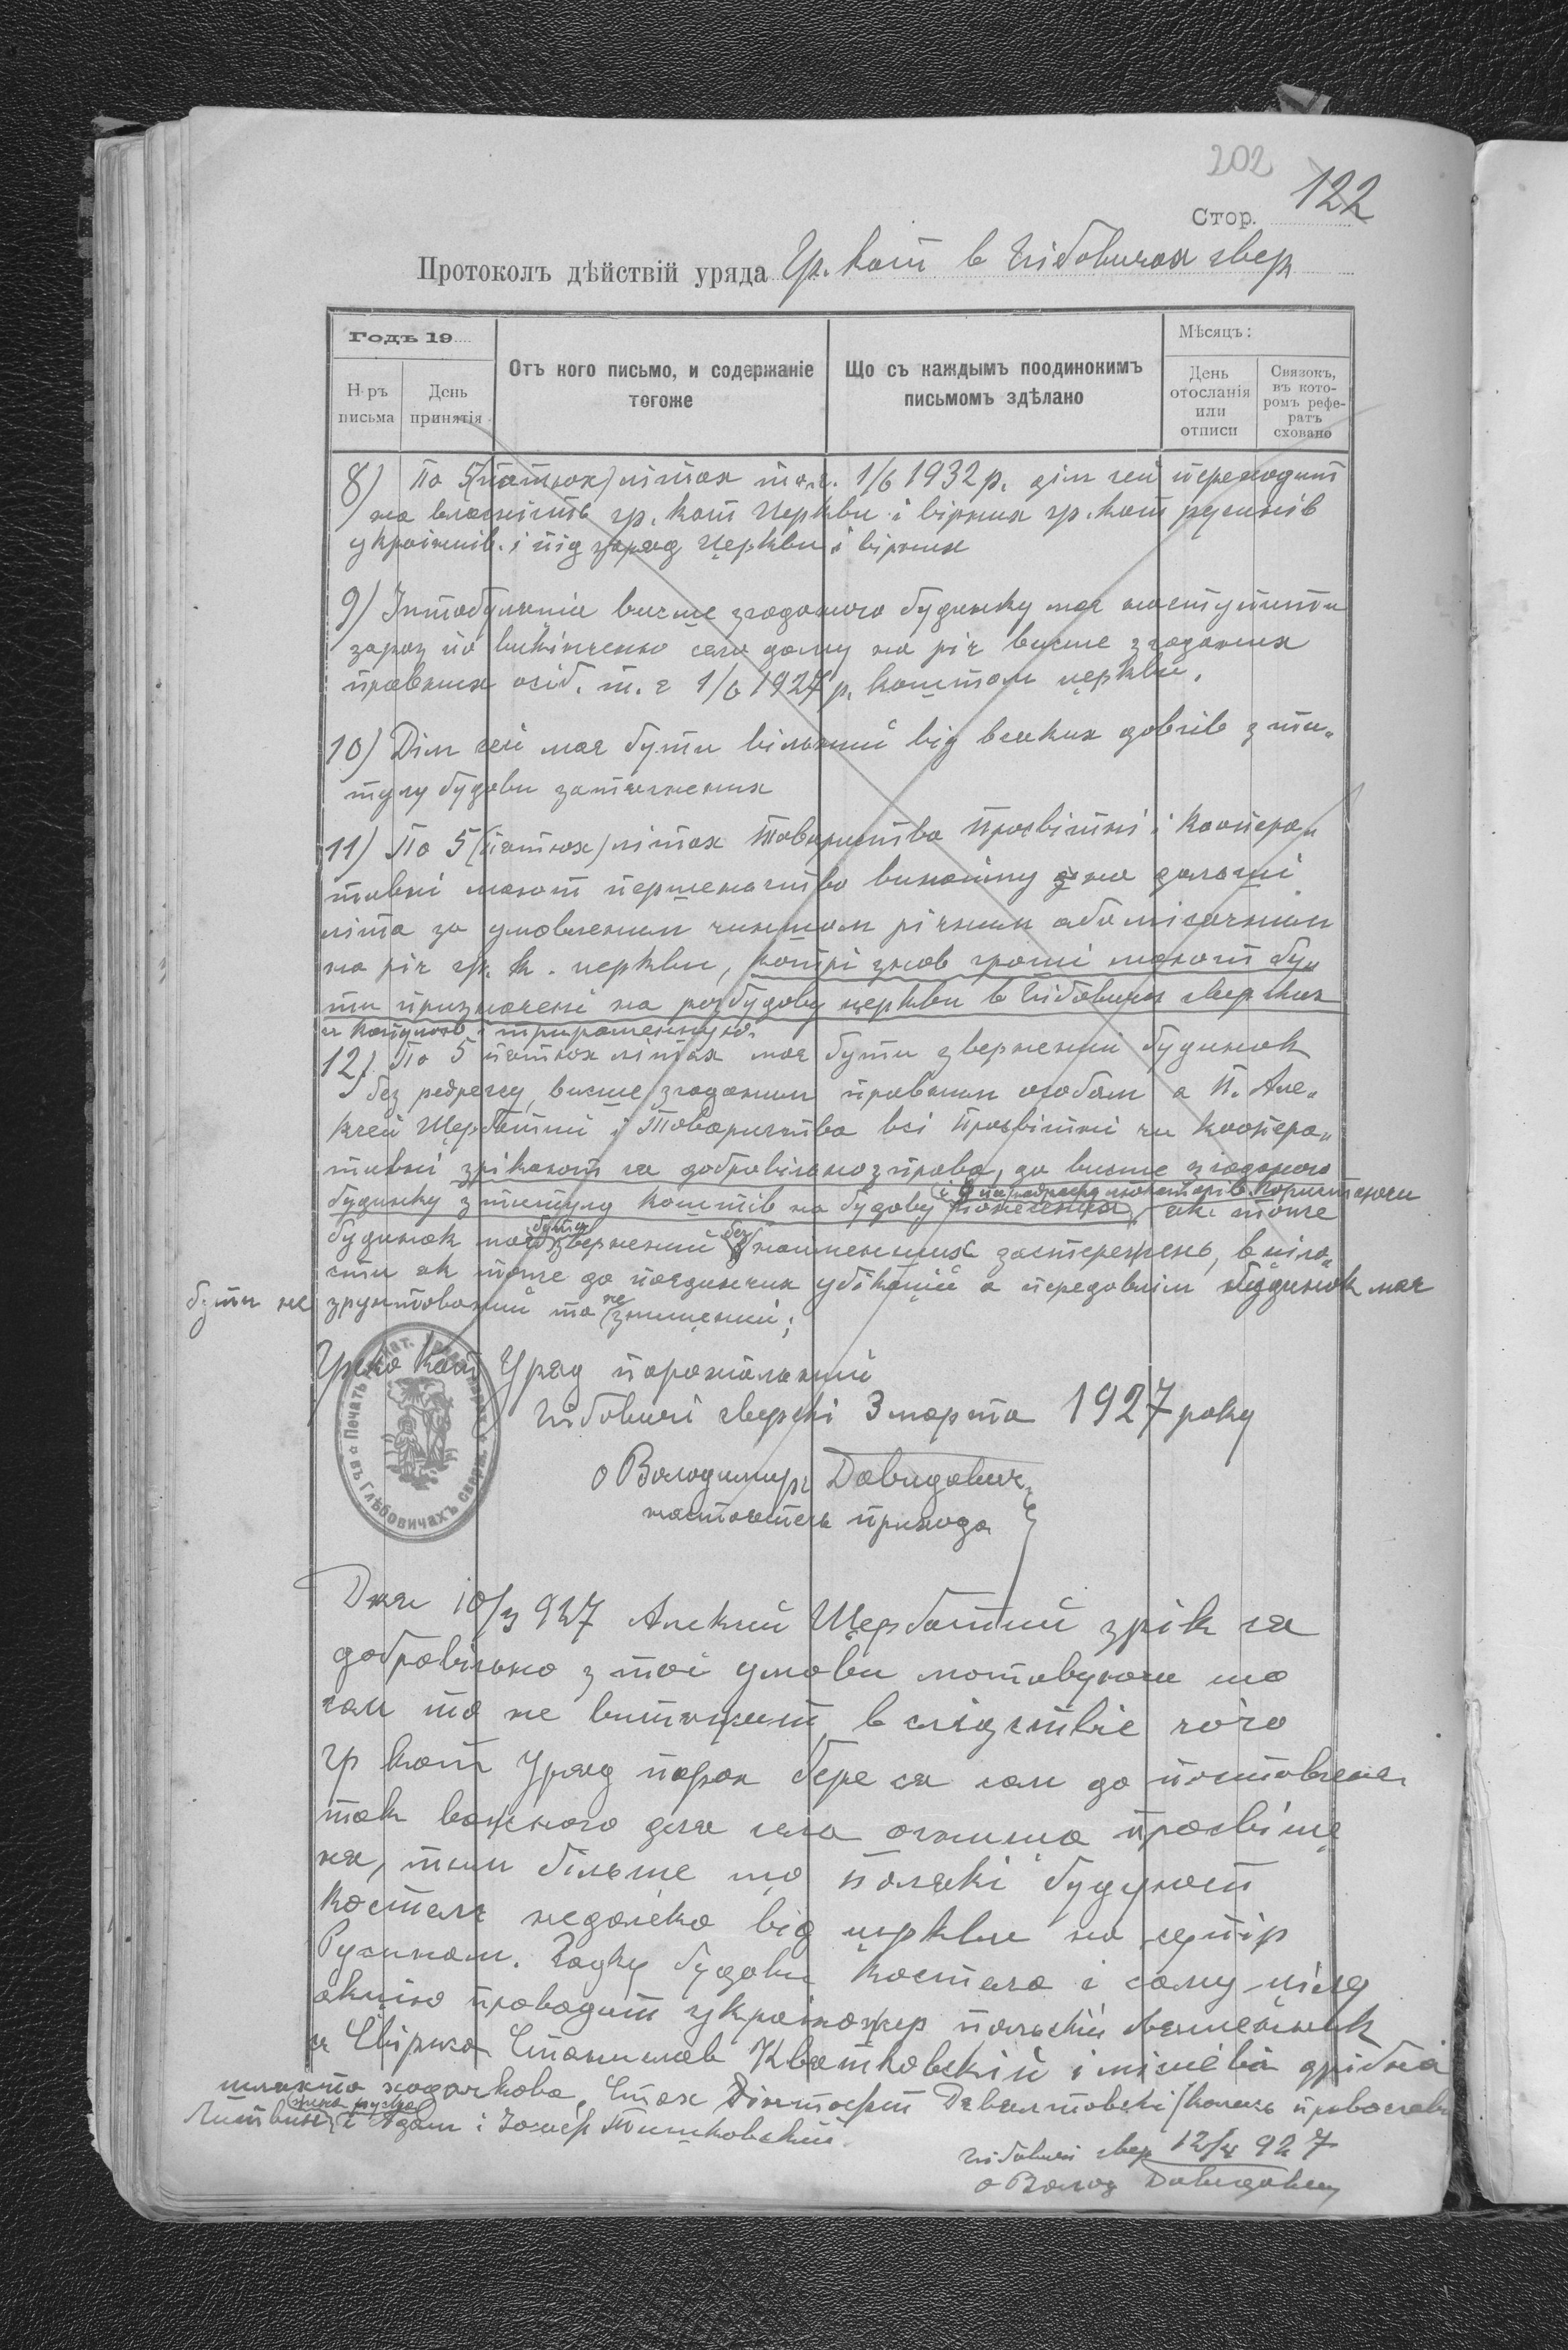 202
Стор. 122
Протоколъ дѣйствій уряда Гр. кат в Глібовичах свер
Годъ 19
Н-ръ письма
День принятія
Отъ кого письмо, и содержаніе тогоже
Що съ каждымъ поодинокимъ письмомъ здѣлано
Мѣсяцъ:
День отосланія или отписи
Связокъ, въ кото-ромъ рефе-ратъ сховано
8) По 5(пятьох) літах т.є. 1/6 1932 р. дім сей переходит
на власність гр. кат Церкви і вірних гр. кат русинів
українців. і під заряд церкви і вірних
9) Інтабуляція висше згаданого будинку має наступити
зараз по викінченю сего дому на річ висше згаданих
правних осіб. т. є 1/6 1927 р. коштом церкви.
10) Дім сей має бути вільний від всяких довгів з ти-
тулу будови затягнених
11) По 5 (пятьох) літах Товариства Просвітні і Коопера-
тивні мають першеньство винайму на дальші
літа за умовленим чиншом річним або місячним
на річ гр. к. церкви, котрі знов гроші мають бу-
ти призначені на розбудову церкви в Глібовичах сверских
12) По 5 пятьох літах має бути звернений будинок
без регресу, висше згаданим правним особам а П. Але-
ксей Щербатий і Товариства всі Просвітні чи коопера-
тивні зрікают ся добровільно з права, до висше згаданого
будинку з титулу коштів на будову , як тоже
будинок має бути звернений без найменших застережень, в ціло-
сти як тоже до поєдинчих убікацій а передовсім будинок має
бути не зруйнований та не знищений;
Греко Кат Уряд парохіальний
Глібовичі сверскі 3 марта 1927 року
о Володимир Давидович
настоятель прихода
Печать гр. кат. Уряда парох. въ Глѣбовичахъ сверж.
Дня 10/3 927 Алексий Щербатий зрік ся
добровільно з тої умови мотивуючи що
сам то не витягнет, в слідствіе чого
гр кат Уряд парох бере ся сам до поставленя
так важного для села огнища просвіще
ня, тим більше що поляки будуют
костел недалеко від церкви на супір
Русинам. Гадку будови костела і саму цілу
акцію проводит україножер польский священник
з Свіржа Станислав Квятковский і місцева дрібна
шляхта ходачкова, Стах Дзвялтовскі
Литвин і Адам і Йосиф Тишковский.
Глібовичі свер 12/ 927
о Волод Давидович